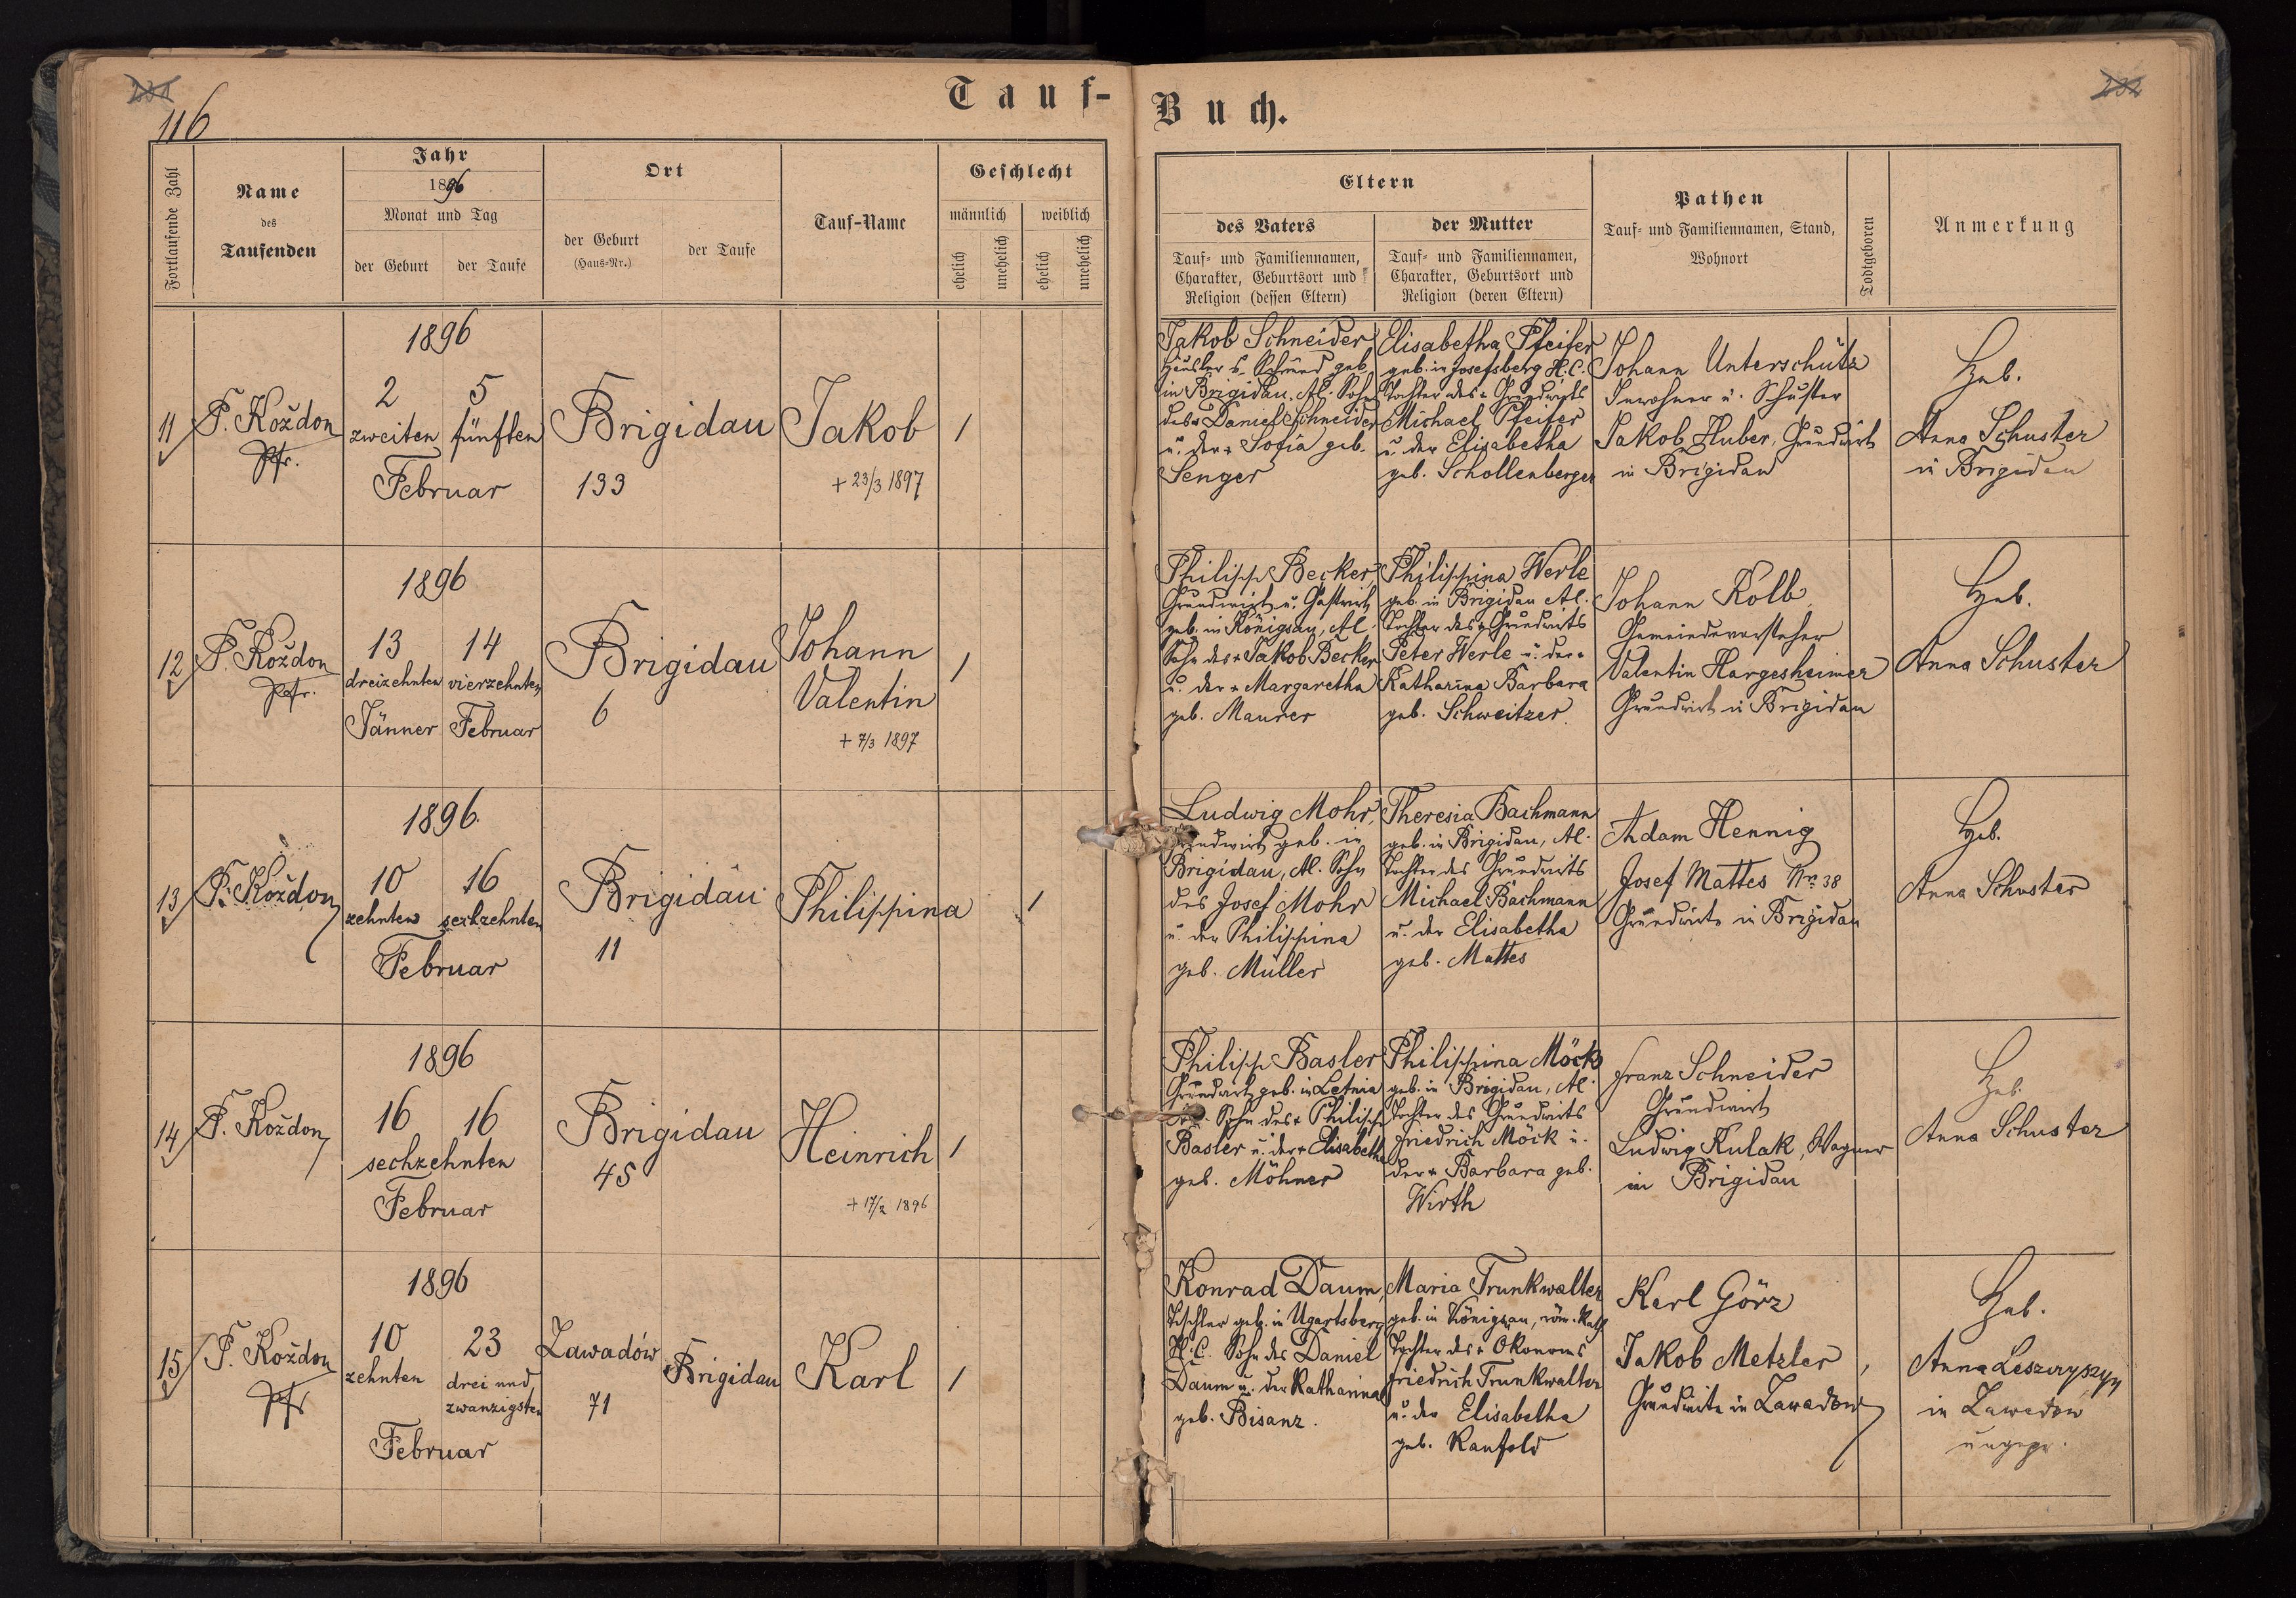 231
116
Tauf-
Fortlaufende Zahl
Name
des
Taufenden
Jahr
1896
Monat und Tag
der Geburt
der Taufe
Ort
der Geburt
(Haus-Nr.)
der Taufe
Tauf-Name
Geschlecht
männlich
weiblich
ehelich
unehelich
ehelich
unehelich
11
P. Kożdon
Pfr.
1896
2
5
zweiten
fünften
Februar
Brigidau
133
Jakob
+ 23/3 1897
1
12
P. Kożdon
Pfr.
1896
13
14
dreizehnten
vierzehnten
Jänner
Februar
Brigidau
6
Johann
Valentin
+ 7/3 1897
1
13
P. Kożdon
1896.
10
16
zehnten
sechzehnten
Februar
Brigidau
11
Philippina
1
14
P. Kożdon
1896
16
16
sechzehnten
Februar
Brigidau
45
Heinrich
+ 17/2 1896
1
15
P. Kożdon
Pfr
1896
10
23
zehnten
drei und
zwanzigsten
Februar
Zawadów
71
Brigidau
Karl
1
232
Buch.
Eltern
des Vaters
Tauf- und Familiennamen,
Charakter, Geburtsort und
Religion (dessen Eltern)
der Mutter
Tauf- und Familiennamen,
Charakter, Geburtsort und
Religion (deren Eltern)
Pathen
Tauf- und Familiennamen, Stand,
Wohnort
Todtgeboren
Anmerkung
Jakob Schneider
Häusler u. Schmied geb.
in Brigidau, A.C. Sohn
des + Daniel Schneider
u. der + Sofia geb.
Senger
Elisabetha Pfeifer
geb. in Josefsberg H.C.
Tochter des + Grundwirts
Michael Pfeifer
u. der Elisabetha
geb. Schollenberger
Johann Unterschütz
Inwohner u. Schuster
Jakob Huber, Grundwirt
in Brigidau
Heb.
Anna Schuster
in Brigidau
Philipp Becker,
Grundwirt u. Gastwirt
geb. in Königsau, A.C.
Sohn des + Jakob Becker
u. der + Margaretha
geb. Maurer
Philippina Werle
geb. in Brigidau A.C.
Tochter des + Grundwirts
Peter Werle u. der +
Katharina Barbara
geb. Schweitzer.
Johann Kolb
Gemeindevorsteher
Valentin Hargesheimer
Grundwirt in Brigidau
Heb.
Anna Schuster
Ludwig Mohr,
Grundwirt geb. in
Brigidau, A.C. Sohn
des Josef Mohr
u. der Philippina
geb. Müller
Theresia Bachmann
geb. in Brigidau, A.C.
Tochter des Grundwirts
Michael Bachmann
u. der Elisabetha
geb. Mattes
Adam Hennig
Josef Mattes Nr. 38
Grundwirte in Brigidau
Heb.
Anna Schuster
Philipp Basler
Grundwirt geb. in Letnia
A.C. Sohn des + Philipp
Basler u. der + Elisabetha
geb. Möhner
Philippina Möck
geb. in Brigidau, A.C.
Tochter des Grundwirts
Friedrich Möck u.
der + Barbara geb.
Wirth
Franz Schneider
Grundwirt
Ludwig Kulak, Wagner
in Brigidau
Heb
Anna Schuster
Konrad Daum,
Tischler geb. in Ugartsberg
H.C. Sohn des Daniel
Daum u. der Katharina
geb. Bisanz.
Maria Trunkwalter
geb. in Königsau, röm. Kath
Tochter des + Ökonoms
Friedrich Trunkwalter
u. der Elisabetha
geb. Ranfold
Karl Görz
Jakob Metzler,
Grundwirte in Zawadów
Heb.
Anna Leszczyszyn
in Zawadów
ungepr.